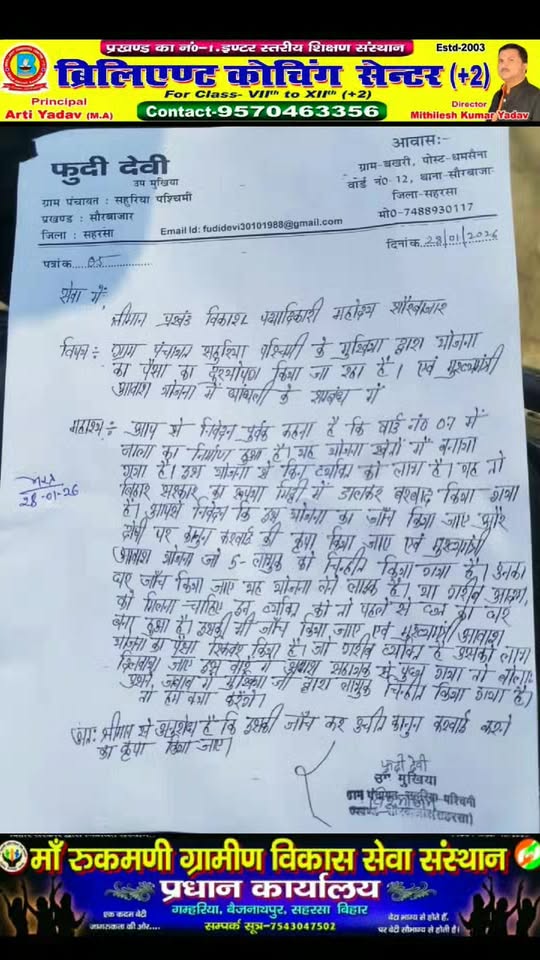 प्रखण्ड का नं०-1. इण्टर स्तरीय शिक्षण संस्थान
Estd-2003
ब्रिलिएण्ट कोचिंग सेन्टर (+2)
For Class- VIIth to XIIth (+2)
Principal
Arti Yadav (M.A)
Contact-9570463356
Director
Mithilesh Kumar Yadav
फुदी देवी
उप मुखिया
ग्राम पंचायत : सहुरिया पश्चिमी
प्रखण्ड : सौरबाजार
जिला : सहरसा
आवास:-
ग्राम-बखरी, पोस्ट-धमसैना
वार्ड नं०-12, थाना-सौरबाजार
जिला-सहरसा
मो०-7488930117
Email Id: fudidevi30101988@gmail.com
पत्रांक 05
दिनांक 28/01/2026
सेवा में,
श्रीमान प्रखंड विकाश पदाधिकारी महोदय सौरबाजार
विषय :- ग्राम पंचायत सहुरिया पश्चिमी के मुखिया द्वारा योजना
का पैसा का किया जा रहा है। एवं मुख्यमंत्री
आवाश योजना में धांधली के सम्बंध में
महाशय :- आप से निवेदन पूर्वक कहना है कि वार्ड नं० 07 में
नाला का निर्माण हुआ है। यह योजना खेतों में बनाया
गया है। इस योजना से किन व्यक्ति को लाभ है। यह तो
बिहार सरकार का रूपया मिट्टी में डालकर बरबाद किया गया
है। आपसे निवेदन कि इस योजना का जाँच किया जाए और
दोषी पर कानुन करवाई की कृपा किया जाए एवं मुख्यमंत्री
आवाश योजना जो 5- लाभुक को चिन्हीत किया गया है। उनका
घर जाँच किया जाए यह योजना लेने लायक है। या गरीब आदमी
को मिलना चाहिए इन व्यक्ति को तो पहले से छत का घर
बना हुआ है। इसकी भी जाँच किया जाए एवं मुख्यमंत्री आवाश
योजना का पैसा किया है। जो गरीब व्यक्ति है उसको लाभ
दिलवाया जाए इस बारे में आवाश सहायक से पुछा गया तो बोला
जवाब में मुखिया जी द्वारा लाभुक चिन्हीत किया गया है।
तो हम क्या करेंगे।
अतः श्रीमान से अनुरोध है कि इसकी जाँच कर उचीत कानुन करवाई करने
का कृपा किया जाए।
28-01-26
फुदी देवी
उप मुखिया
ग्राम पंचायत-सहुरिया-पश्चिमी
प्रखण्ड-सौरबाजार(सहरसा)
माँ रुकमणी ग्रामीण विकास सेवा संस्थान
प्रधान कार्यालय
गम्हरिया, बैजनाथपुर, सहरसा बिहार
सम्पर्क सूत्र-7543047502
एक कदम बेटी
जागरुकता की ओर....
बेटा भाग्य से होते हैं,
पर बेटी सौभाग्य से होती है।